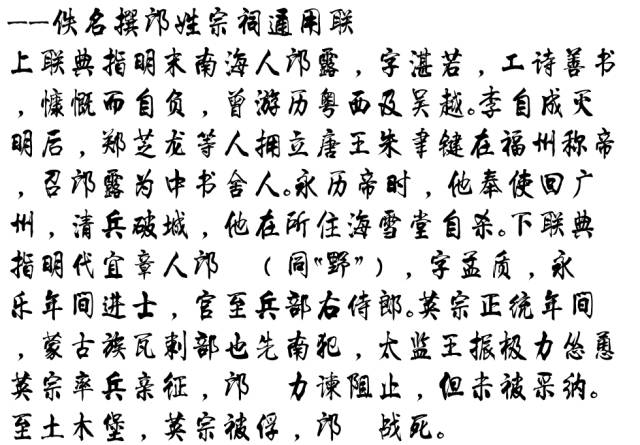 ——佚名撰邝姓宗祠通用联
上联典指明末南海人邝露，字湛若，工诗善书
，慷慨而自负，曾游历粤西及吴越。李自成灭
明后，郑芝龙等人拥立唐王朱聿键在福州称帝
，召邝露为中书舍人。永历帝时，他奉使回广
州，清兵破城，他在所住海雪堂自杀。下联典
指明代宜章人邝　（同“野”），字孟质，永
乐年间进士，官至兵部右侍郎。英宗正统年间
，蒙古族瓦剌部也先南犯，太监王振极力怂恿
英宗率兵亲征，邝　力谏阻止，但未被采纳。
至土木堡，英宗被俘，邝　战死。